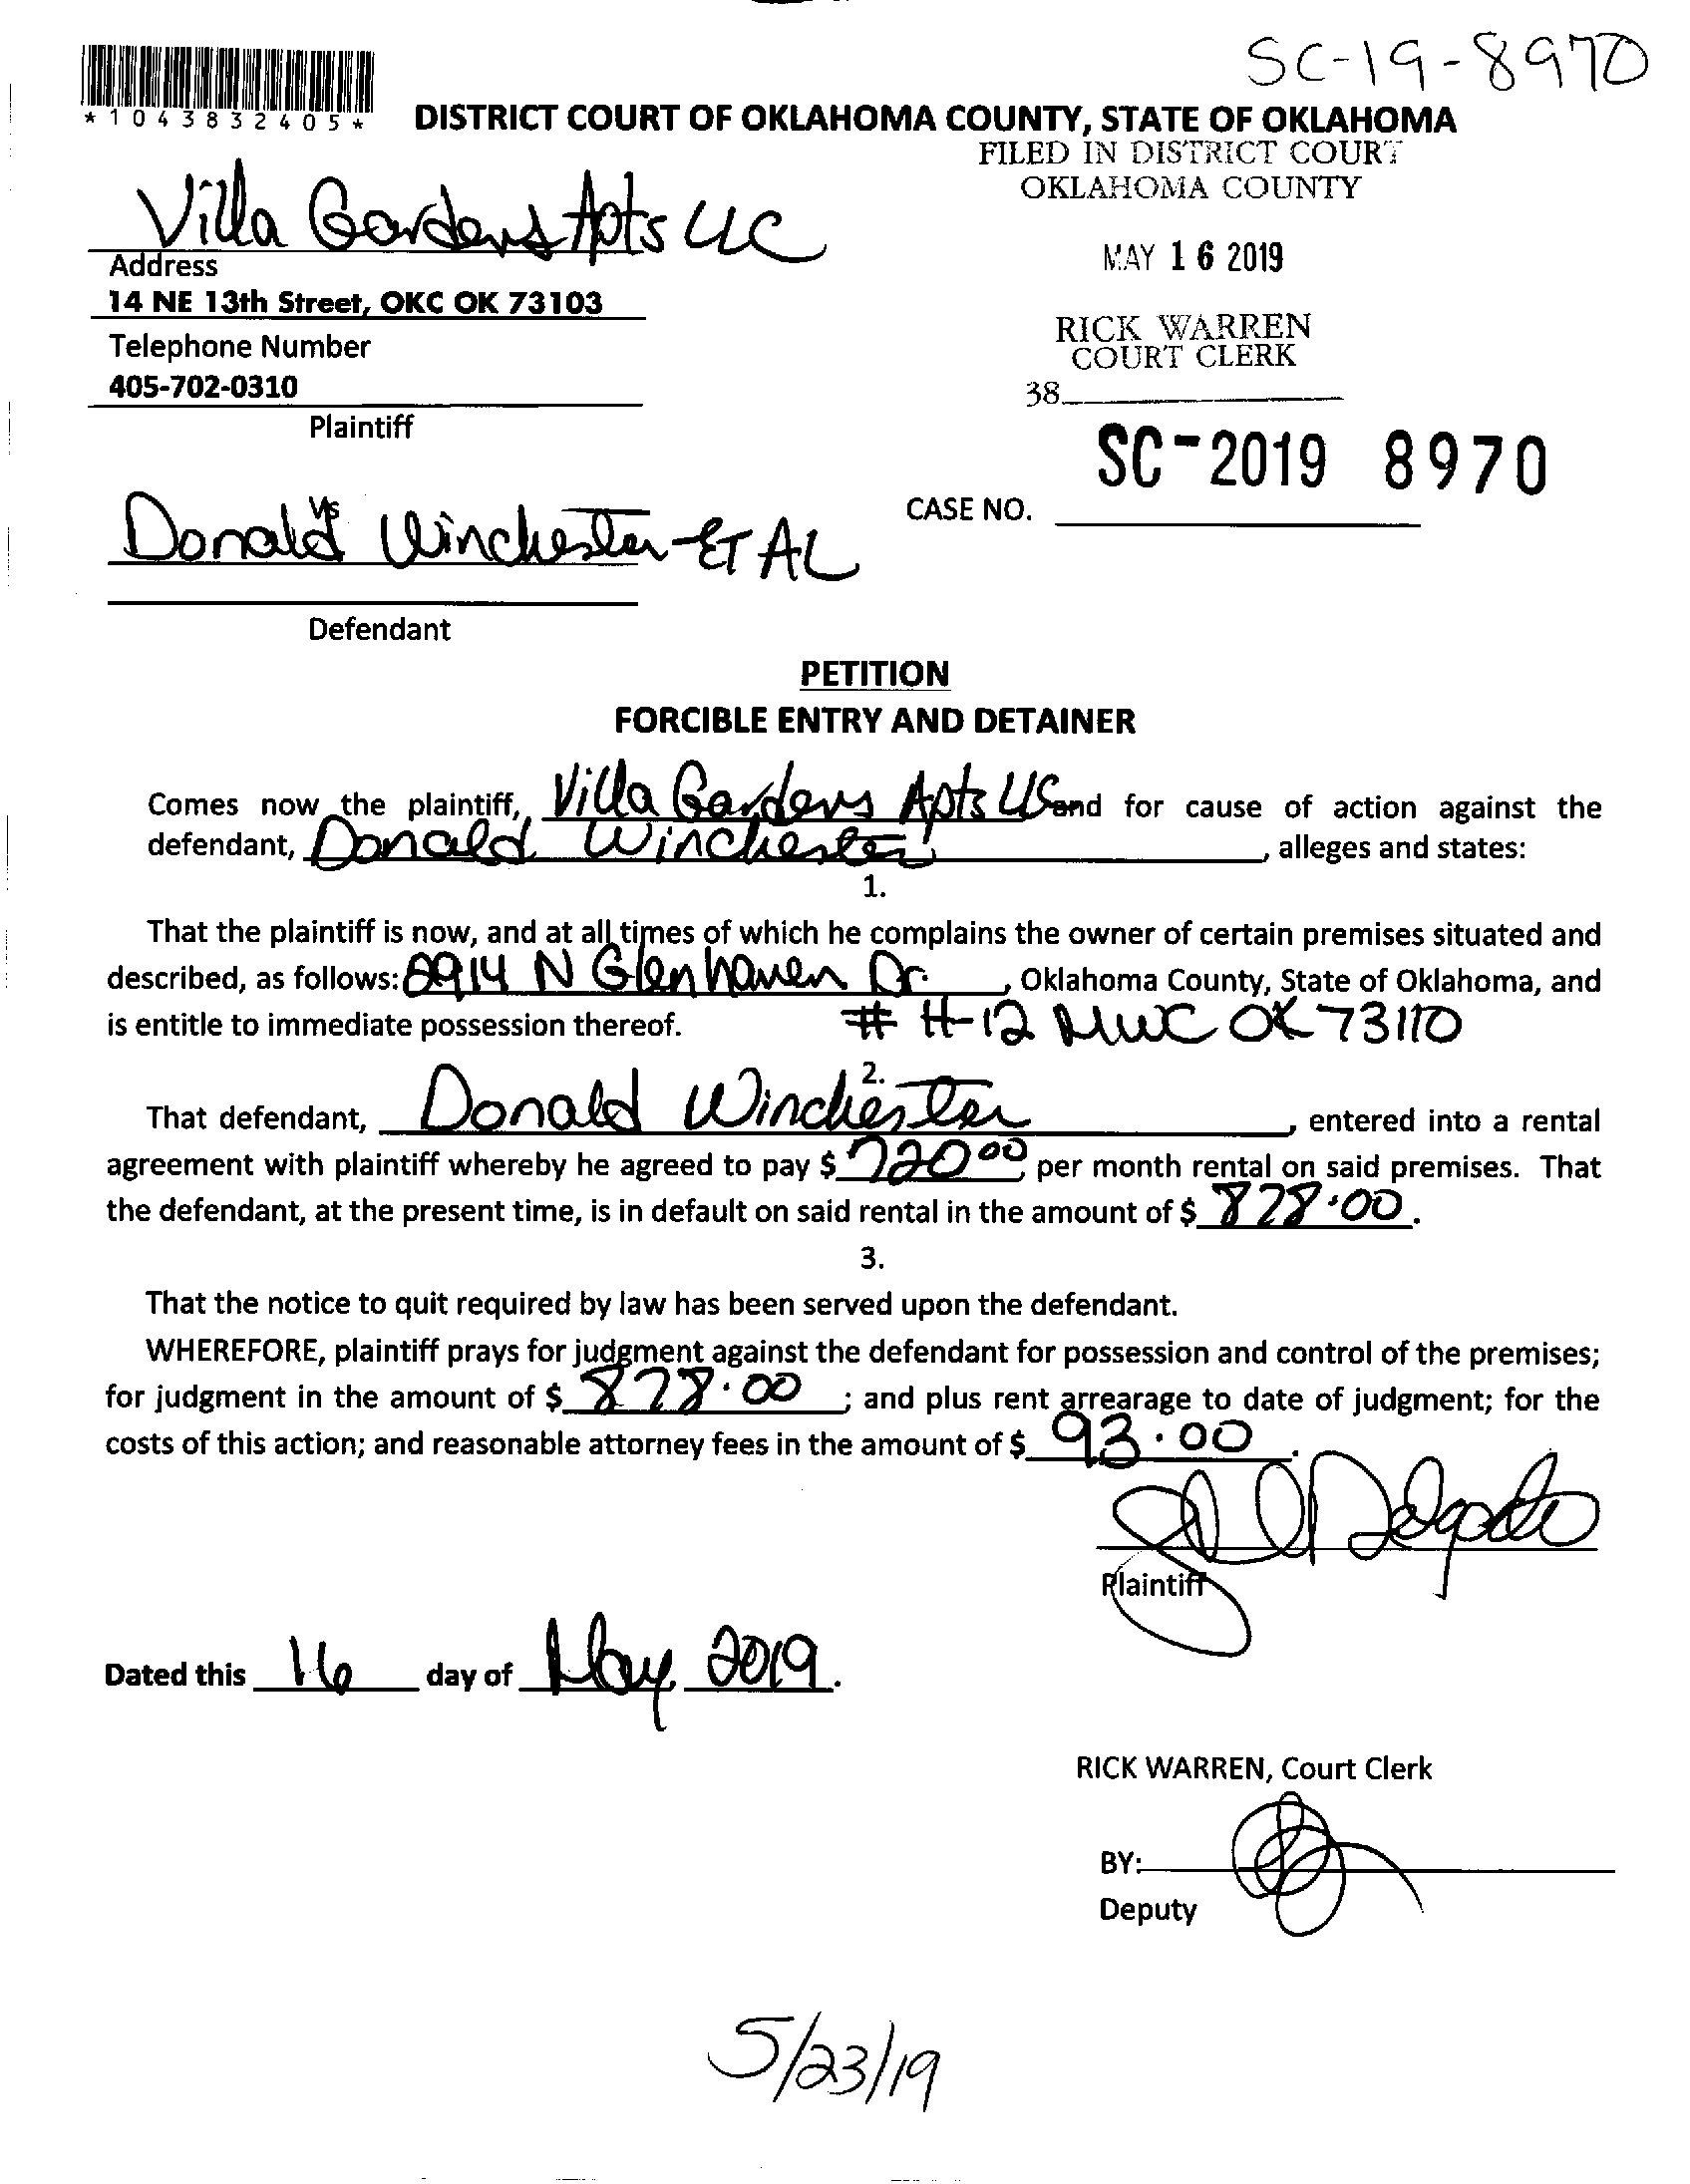 SC-19-8970
*1043832405*
DISTRICT COURT OF OKLAHOMA COUNTY, STATE OF OKLAHOMA
FILED IN DISTRICT COURT
OKLAHOMA COUNTY
Villa Gardens Apts LLC
Address
14 NE 13th Street, OKC OK 73103
Telephone Number
405-702-0310
Plaintiff
MAY 16 2019
RICK WARREN
COURT CLERK
38
SC-2019 8970
CASE NO.
vs
Donald Winchester ET AL
Defendant
PETITION
FORCIBLE ENTRY AND DETAINER
Comes now the plaintiff, Villa Gardens Apts LLC and for cause of action against the
defendant, Donald Winchester, alleges and states:
1.
That the plaintiff is now, and at all times of which he complains the owner of certain premises situated and
described, as follows: 2914 N Glenhaven Dr., Oklahoma County, State of Oklahoma, and
is entitle to immediate possession thereof. # H-12 MWC OK 73110
2.
That defendant, Donald Winchester, entered into a rental
agreement with plaintiff whereby he agreed to pay $ 720.00 per month rental on said premises. That
the defendant, at the present time, is in default on said rental in the amount of $ 828.00.
3.
That the notice to quit required by law has been served upon the defendant.
WHEREFORE, plaintiff prays for judgment against the defendant for possession and control of the premises;
for judgment in the amount of $ 828.00; and plus rent arrearage to date of judgment; for the
costs of this action; and reasonable attorney fees in the amount of $ 93.00.
Delgado
Plaintiff
Dated this 16 day of May 2019.
RICK WARREN, Court Clerk
BY:
Deputy
5/23/19